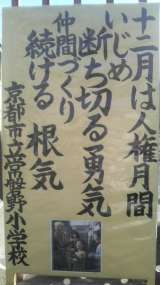 十二月は人権月間
いじめ
断ち切る勇気
仲間づくり
続ける 根気
京都市立常磐野小学校